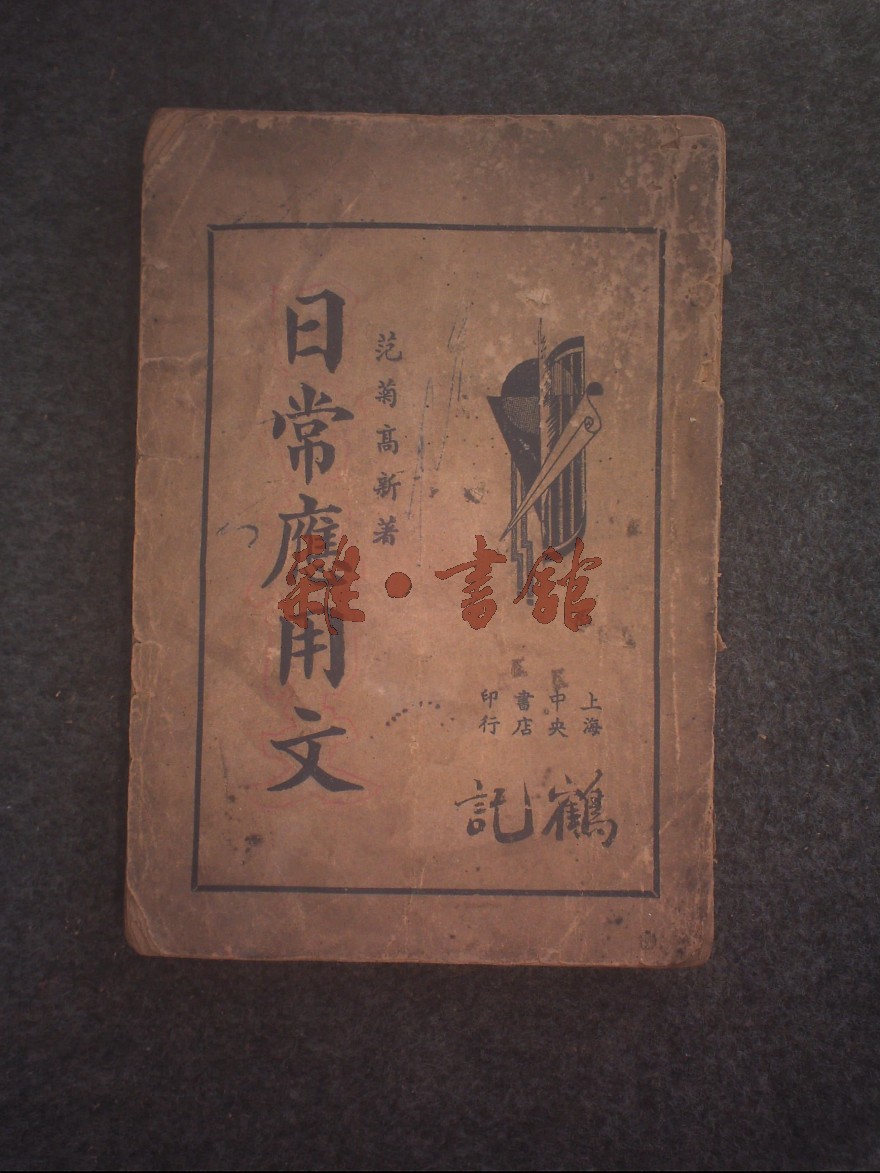 日常應用文
范菊高新著
上海
中央
書店
印行
鶴記
雜·書館